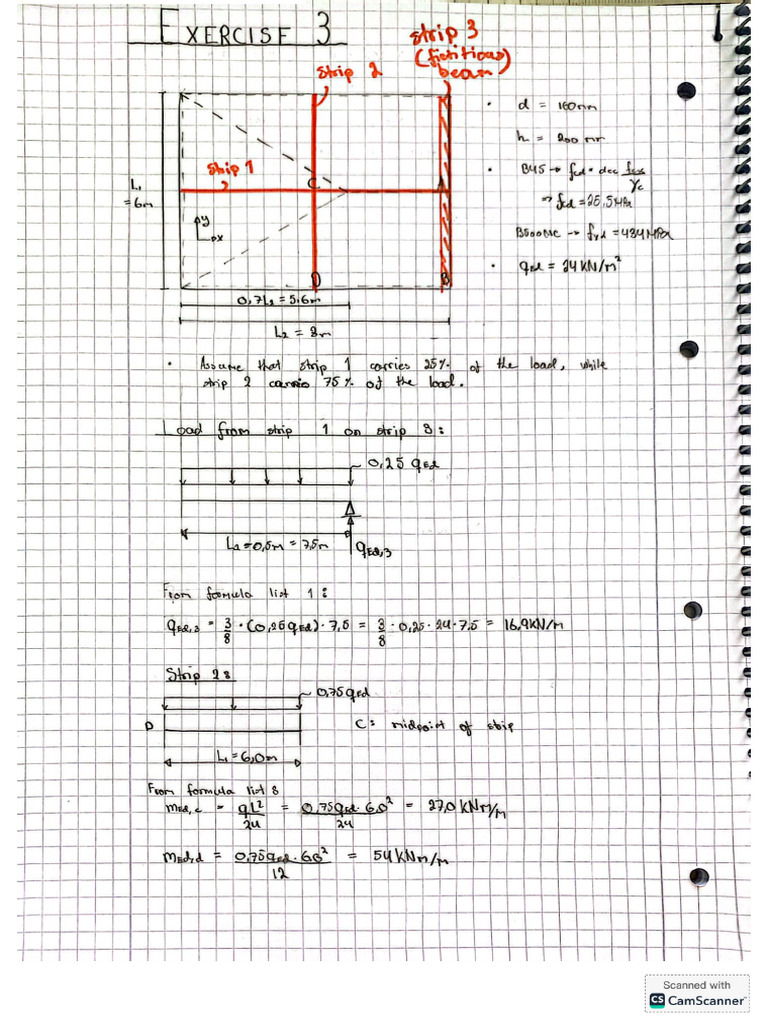 EXERCISE 3
1
strip 3
(fictitious)
beam
strip 2
d = 160mm
h = 200 mm
strip 1
C
A
B45 → fcd = αcc fck/γc
L1
= 6m
⇒ fcd = 25,5MPa
y
x
B500NC → fyd = 434MPa
D
B
qEd = 24 KN/m²
0,7L2 = 5.6m
L2 = 8m
Assume that strip 1 carries 25% of the load, while
strip 2 carries 75% of the load.
Load from strip 1 on strip 3:
0,25 qEd
L2 - 0,5m = 7,5m
qEd,3
From formula list 1:
qEd,3 = 3/8 · (0,25qEd) · 7,5 = 3/8 · 0,25 · 24 · 7,5 = 16,9KN/m
Strip 2:
0,75qEd
D
C: midpoint of strip
L1 = 6,0m
From formula list:
mEd,c = qL²/24 = 0,75qEd · 6,0²/24 = 27,0 KNm/m
mEd,d = 0,75qEd · 6,0²/12 = 54 KNm/m
Scanned with
CS CamScanner